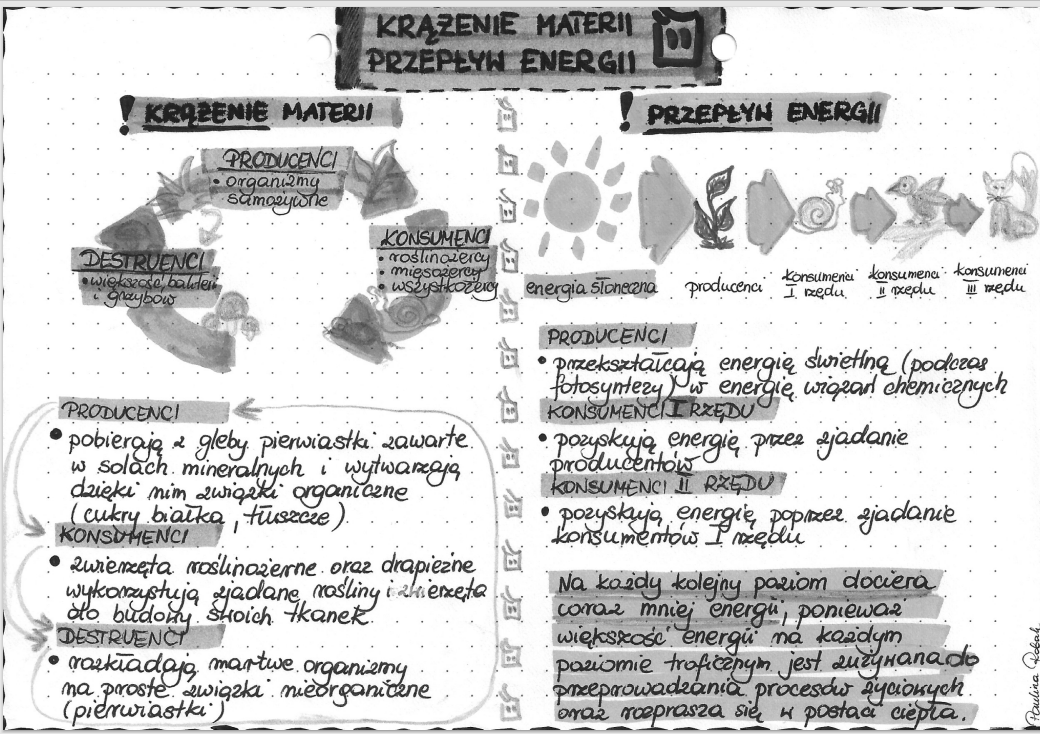 KRĄŻENIE MATERII
PRZEPŁYW ENERGII
! KRĄŻENIE MATERII
PRODUCENCI
• organizmy
samożywne
KONSUMENCI
• roślinożercy
• mięsożercy
• wszystkożercy
DESTRUENCI
• większość bakterii
i grzybów
PRODUCENCI
• pobierają z gleby pierwiastki zawarte
w solach mineralnych i wytwarzają
dzięki nim związki organiczne
(cukry białka, tłuszcze)
KONSUMENCI
• zwierzęta roślinożerne oraz drapieżne
wykorzystują zjadane rośliny i zwierzęta
do budowy swoich tkanek
DESTRUENCI
• rozkładają martwe organizmy
na proste związki nieorganiczne
(pierwiastki)
! PRZEPŁYW ENERGII
energia słoneczna
producenci
konsumenci
I rzędu
konsumenci
II rzędu
konsumenci
III rzędu
PRODUCENCI
• przekształcają energię świetlną (podczas
fotosyntezy) w energię wiązań chemicznych
KONSUMENCI I RZĘDU
• pozyskują energię przez zjadanie
producentów
KONSUMENCI II RZĘDU
• pozyskują energię poprzez zjadanie
konsumentów I rzędu
Na każdy kolejny poziom dociera
coraz mniej energii, ponieważ
większość energii na każdym
poziomie troficznym jest zużywana do
przeprowadzania procesów życiowych
oraz rozprasza się w postaci ciepła.
Paulina